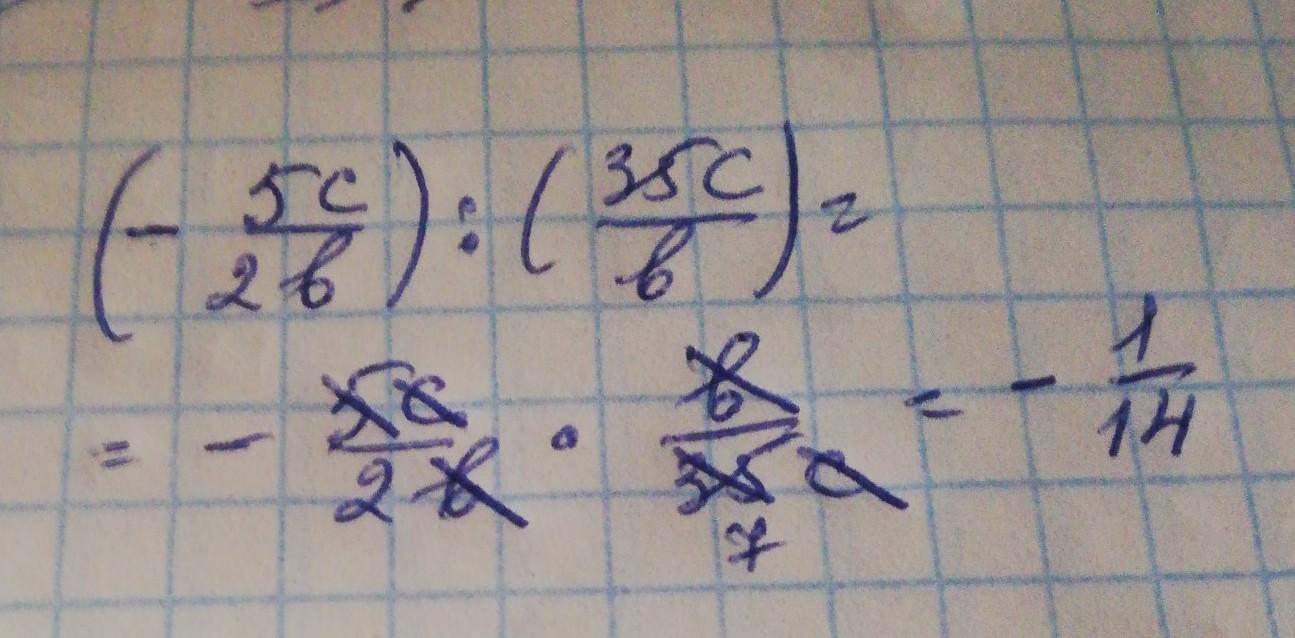 (- 5c/2b) : (35c/b) =
= - 5c/2b · b/35c = - 1/14
7